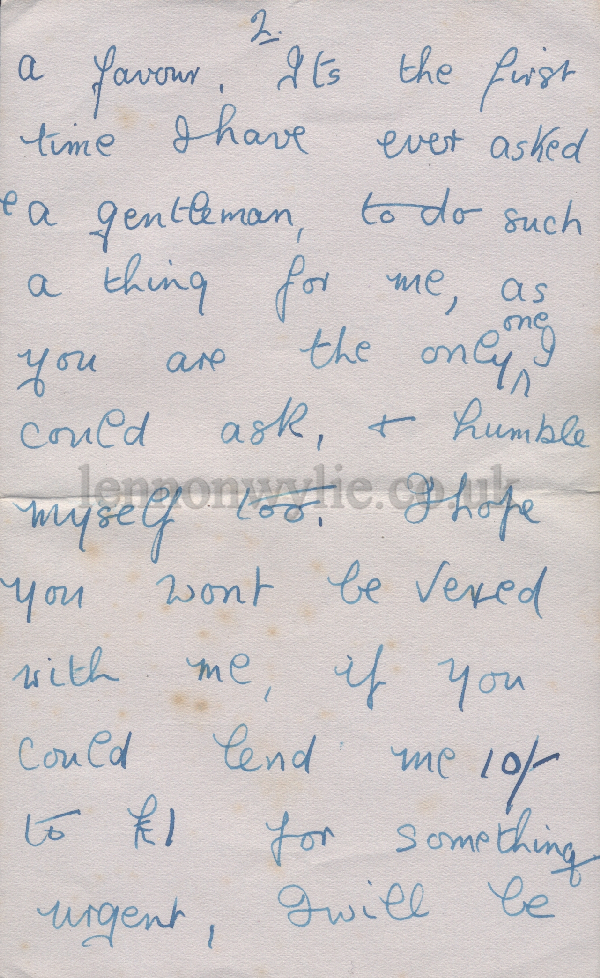 2.
a favour. Its the first
time I have ever asked
a gentleman, to do such
a thing for me, as
you are the only one I
could ask, + humble
lennonwylie.co.uk
myself too. I hope
you wont be vexed
with me, if you
could lend me 10/-
to £1 for something
urgent, I will be